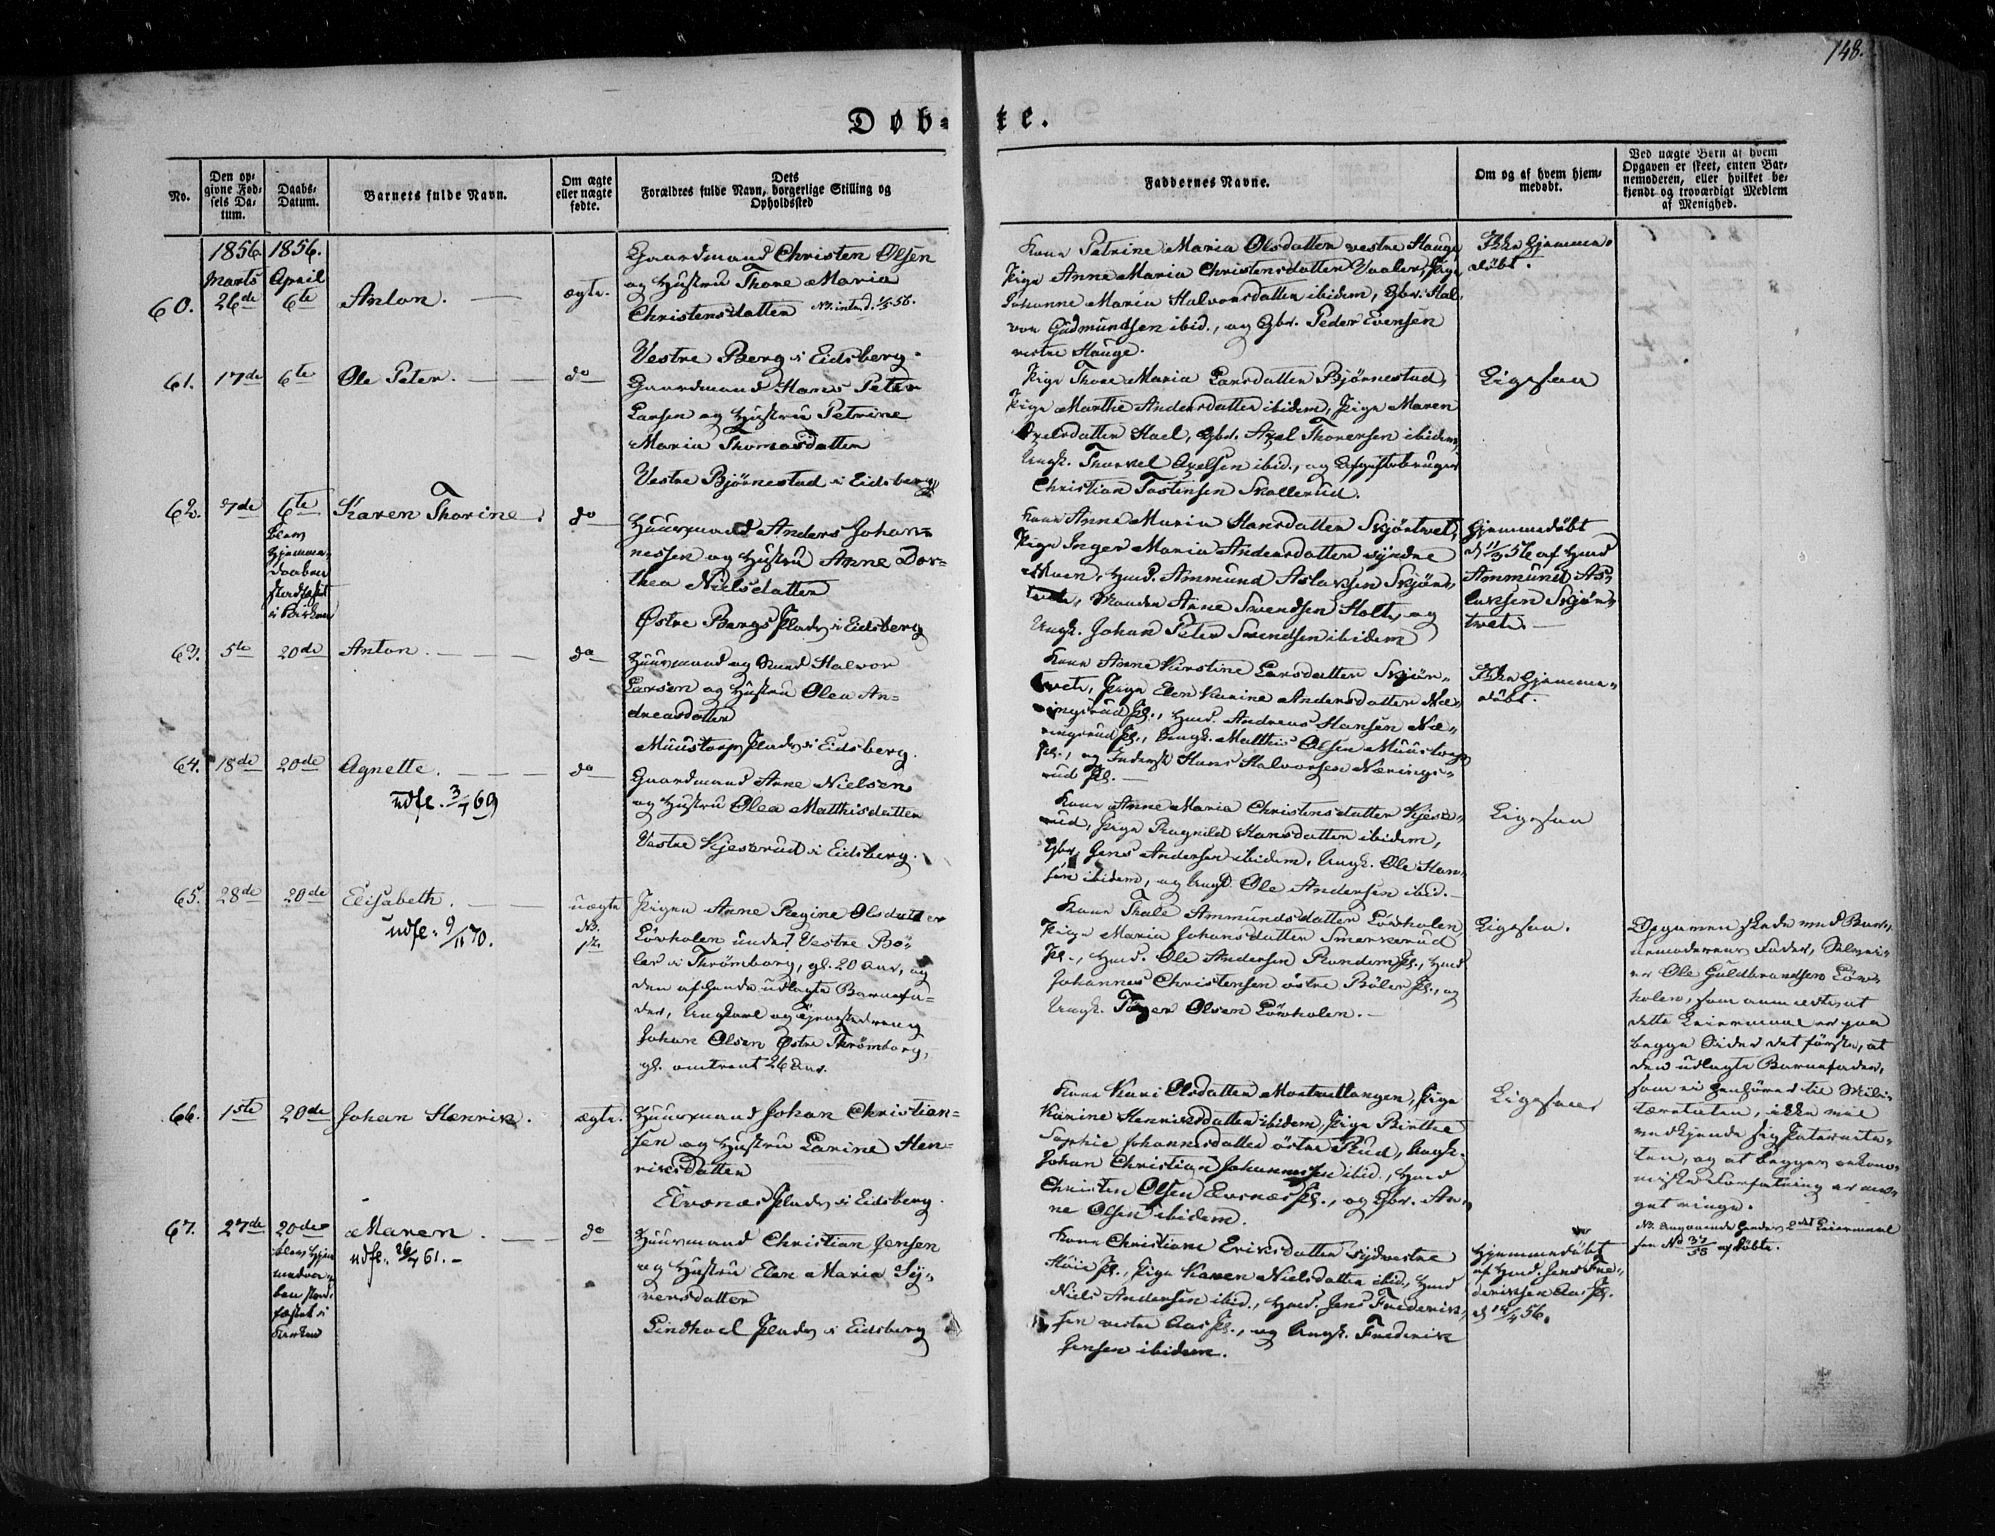 148.
Døb-
te.
No.
Den op-
givne Fød-
sels Da-
tum.
Daabs-
Datum.
Barnets fulde Navn.
Om ægte
eller uægte
fødte.
Dets
Forældres fulde Navn, borgerlige Stilling og
Opholdssted
Faddernes Navne.
Om og af hvem hjem-
medøbt.
Ved uægte Børn af hvem
Opgaven er skeet, enten Bar-
nemoderen, eller hvilket be-
kjendt og troværdigt Medlem
af Menighed.
1856. 1856.
Marts April
60. 26de 6te Anton. ægte.
Gaardmand Christen Olsen
og Hustru Thore Maria
Christensdatter
Vestre Berg i Eidsberg.
Kone Petrine Maria Olsdatter vestre Hauge,
Pige Anne Maria Christensdatter Vaaler, Pige
Johanne Maria Halvorsdatter ibidem, Gbr. Hal-
vor Gudmundsen ibid., og Gbr. Peder Evensen
vestre Hauge.
Ikke hjemme-
døbt.
61. 17de 6te Ole Peter. do
Gaardmand Hans Peter
Larsen og Hustru Petrine
Maria Thomasdatter
Vestre Bjørnestad i Eidsberg
Pige Thore Maria Larsdatter Bjørnestad,
Pige Marthe Andersdatter ibidem, Pige Maren
Axelsdatter Hael, Gbr. Axel Thorersen ibidem,
Ungk. Thorvel Axelsen ibid., og Afgiftsbruger
Christian Tostensen Skollerud.
Ligesaa
62. 7de 6te Karen Thorine. do
Hjemme-
daaben
stadfæstet
i Kirken
Huusmand Anders Johan-
nessen og Hustru Anne Dor-
thea Nielsdatter
Østre Bergs Plads i Eidsberg
Kone Anne Maria Hansdatter Skjørtvet,
Pige Inger Maria Andersdatter syndre
Moen, Husd. Ammund Aslaksen Skjørt-
tvet, Manden Arne Svendsen Holt, og
Ungk. Johan Peter Svendsen ibidem
Hjemmedøbt
d 11/3 56 af Husd
Ammund As-
laksen Skjør-
tvet.
63. 5te 20de Anton. do
Huusmand og Smed Halvor
Larsen og Hustru Olea An-
dreasdatter
Muustorp Plads i Eidsberg.
Kone Anne Kirstine Larsdatter Skjør-
tvet, Pige Elen Karine Andersdatter Næ-
ringsrud Pl., Husd. Andreas Hansen Næ-
ringsrud Pl., Ungk. Matthis Olsen Muustorp
Pl., og Inderst Hans Halvorsen Nærings-
rud Pl.
Ikke hjemme-
døbt.
64. 18de 20de Agnette. do
udfl. 3/4 69
Gaardmand Arne Nielsen
og Hustru Olea Matthisdatter
Vestre Kjeserud i Eidsberg.
Kone Anne Maria Christensdatter Kjese-
rud, Pige Ragnild Hansdatter ibidem,
Gbr. Jens Andersen ibidem, Ungk. Ole Han-
sen ibidem, og Ungk Ole Andersen ibid.
Ligesaa
65. 28de 20de Elisabeth. uægte
NB.
udfl. 9/11 70.
Pigen Anne Regine Olsdatter
Løvholen under Vestre Bø-
ler i Thrømborg, gl. 20 Aar, og
den af hende udlagte Barnefa-
der, Ungkarl og Tjenestedreng
Johan Olsen Østre Thrømborg,
gl. omtrent 26 Aar.
Kone Thale Ammundsdatter Løvholen,
Pige Maria Johansdatter Smerkerud
Pl., Husd. Ole Andersen Rundem Pl., Husd
Johannes Christensen østre Böler Pl., og
Ungk. Torger Olsen Løvholen.
Ligesaa.
Opgaven skede med Bar-
nemoderens Fader, Selvei-
er Ole Guldbrandsen Løv-
holen, som anmeldte, at
dette Leiermaal er paa
begge Sider det første, at
den udlagte Barnefader,
som ei henhører til Mili-
tæretaten, ikke vil
vedkjende sig Paternite-
ten, og at begges økono-
miske Forfatning er me-
get ringe.
NB. Angaaende hendes 2det Leiermaal
see No 37/58 af døbte.
66. 1ste 20de Johan Henrik. ægte.
Huusmand Johan Christian-
sen og Hustru Larine Hen-
riksdatter
Elvenæs Plads i Eidsberg.
Kone Kari Olsdatter Mostvetlangen, Pige
Karine Henriksdatter ibidem, Pige Birthe
Sophie Johannesdatter østre Rud, Ungk.
Johan Christian Johannessen ibid., Husd
Christen Olsen Evenæs Pl., og Gbr. Ar-
ne Olsen ibidem.
Ligesaa
67. 27de 20de Maren. do
udfl. 26/4 61.
Huusmand Christian Jensen
og Hustru Elen Maria Sy-
versdatter
Lindhael Plads i Eidsberg
Kone Christiane Eriksdatter sydvestre
Höie Pl., Pige Karen Nielsdatter ibid., Husd
Niels Andersen ibid., Husd. Jens Frederik-
sen vestre Aas Pl., og Ungk. Frederik
Jensen ibidem.
Hjemmedøbt
af Husd. Jens Fre-
deriksen Aas Pl.